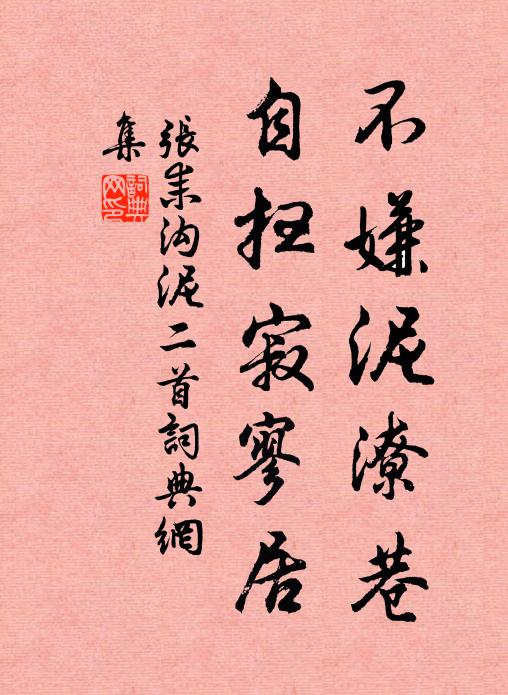 不嫌泥潦巷
自扫寂寥居
張耒沟泥二首詞典網
集
詞典
网印